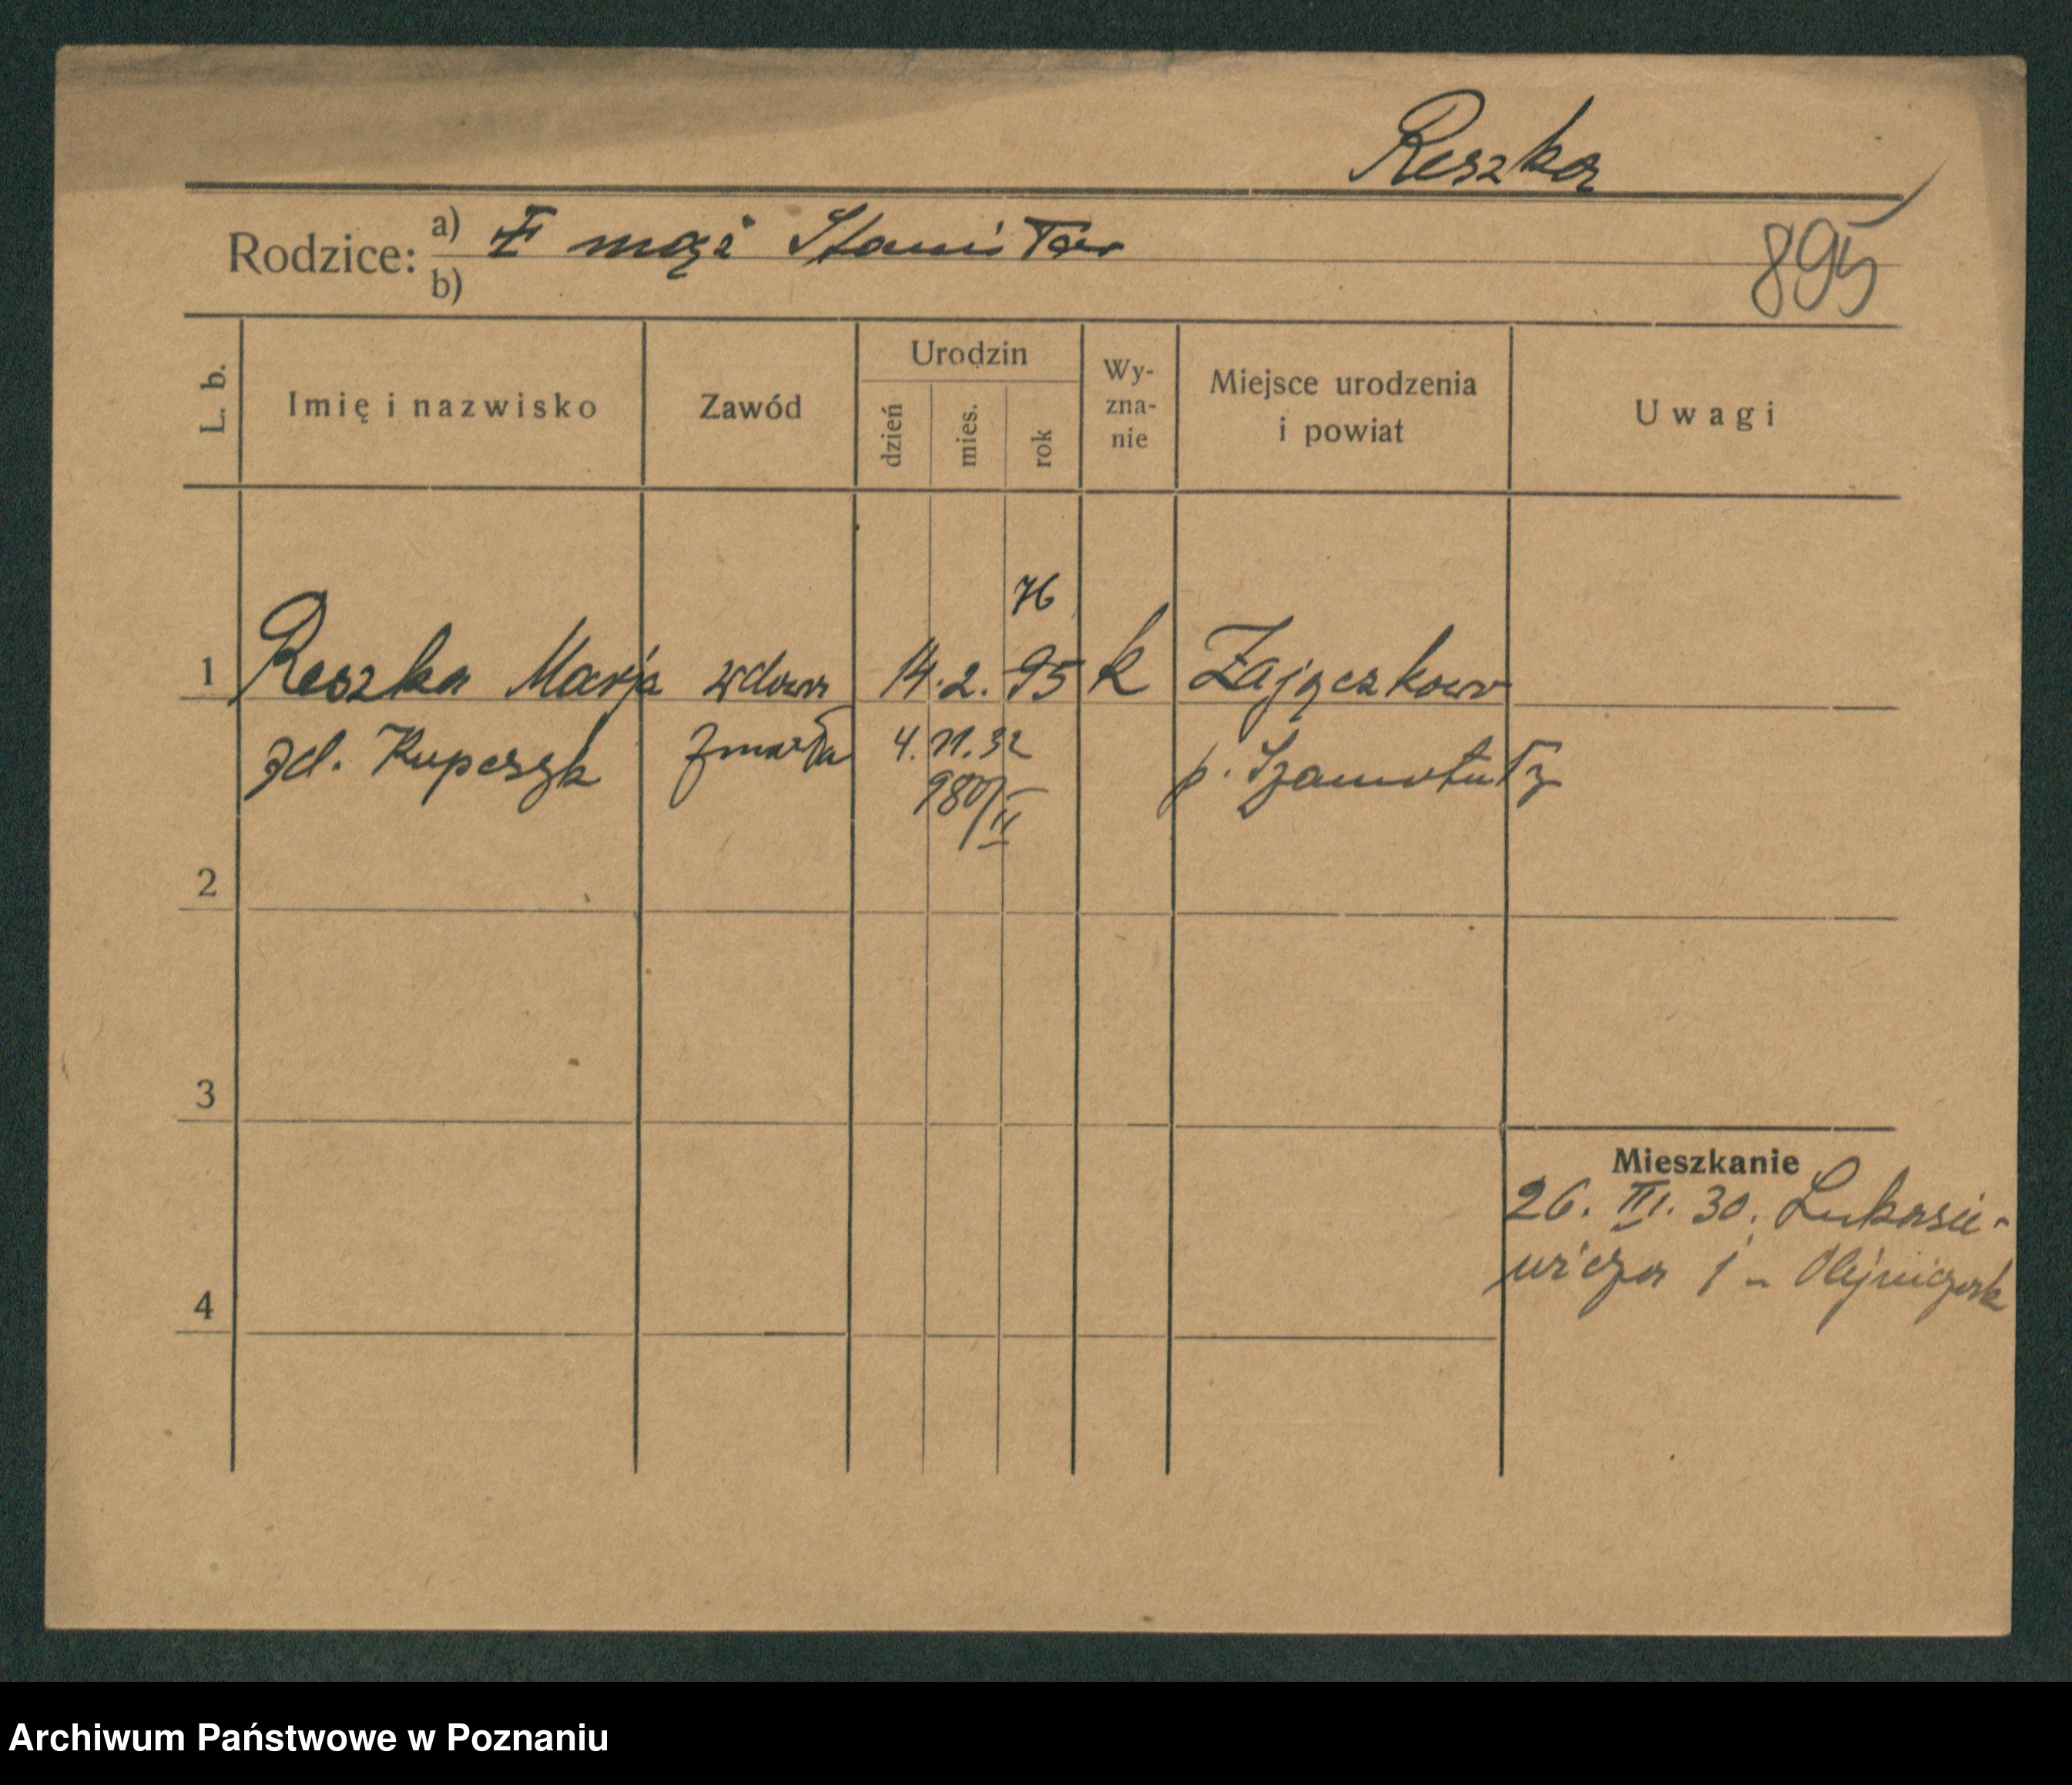 Reszka
Rodzice: a) I mąż Stanisław
b)
895
L. b. Imię i nazwisko Zawód Urodzin dzień mies. rok Wy-zna-nie Miejsce urodzenia i powiat Uwagi
76
1 Reszka Marja wdowa 14. 2. 95 k Zajączkowo
zd. Kupczyk zmarła 4. 11. 32 p. Szamotuły
980/II
2
3
Mieszkanie
26. III. 30. Łukasie-
wicza 1 - Olejniczak
4
Archiwum Państwowe w Poznaniu